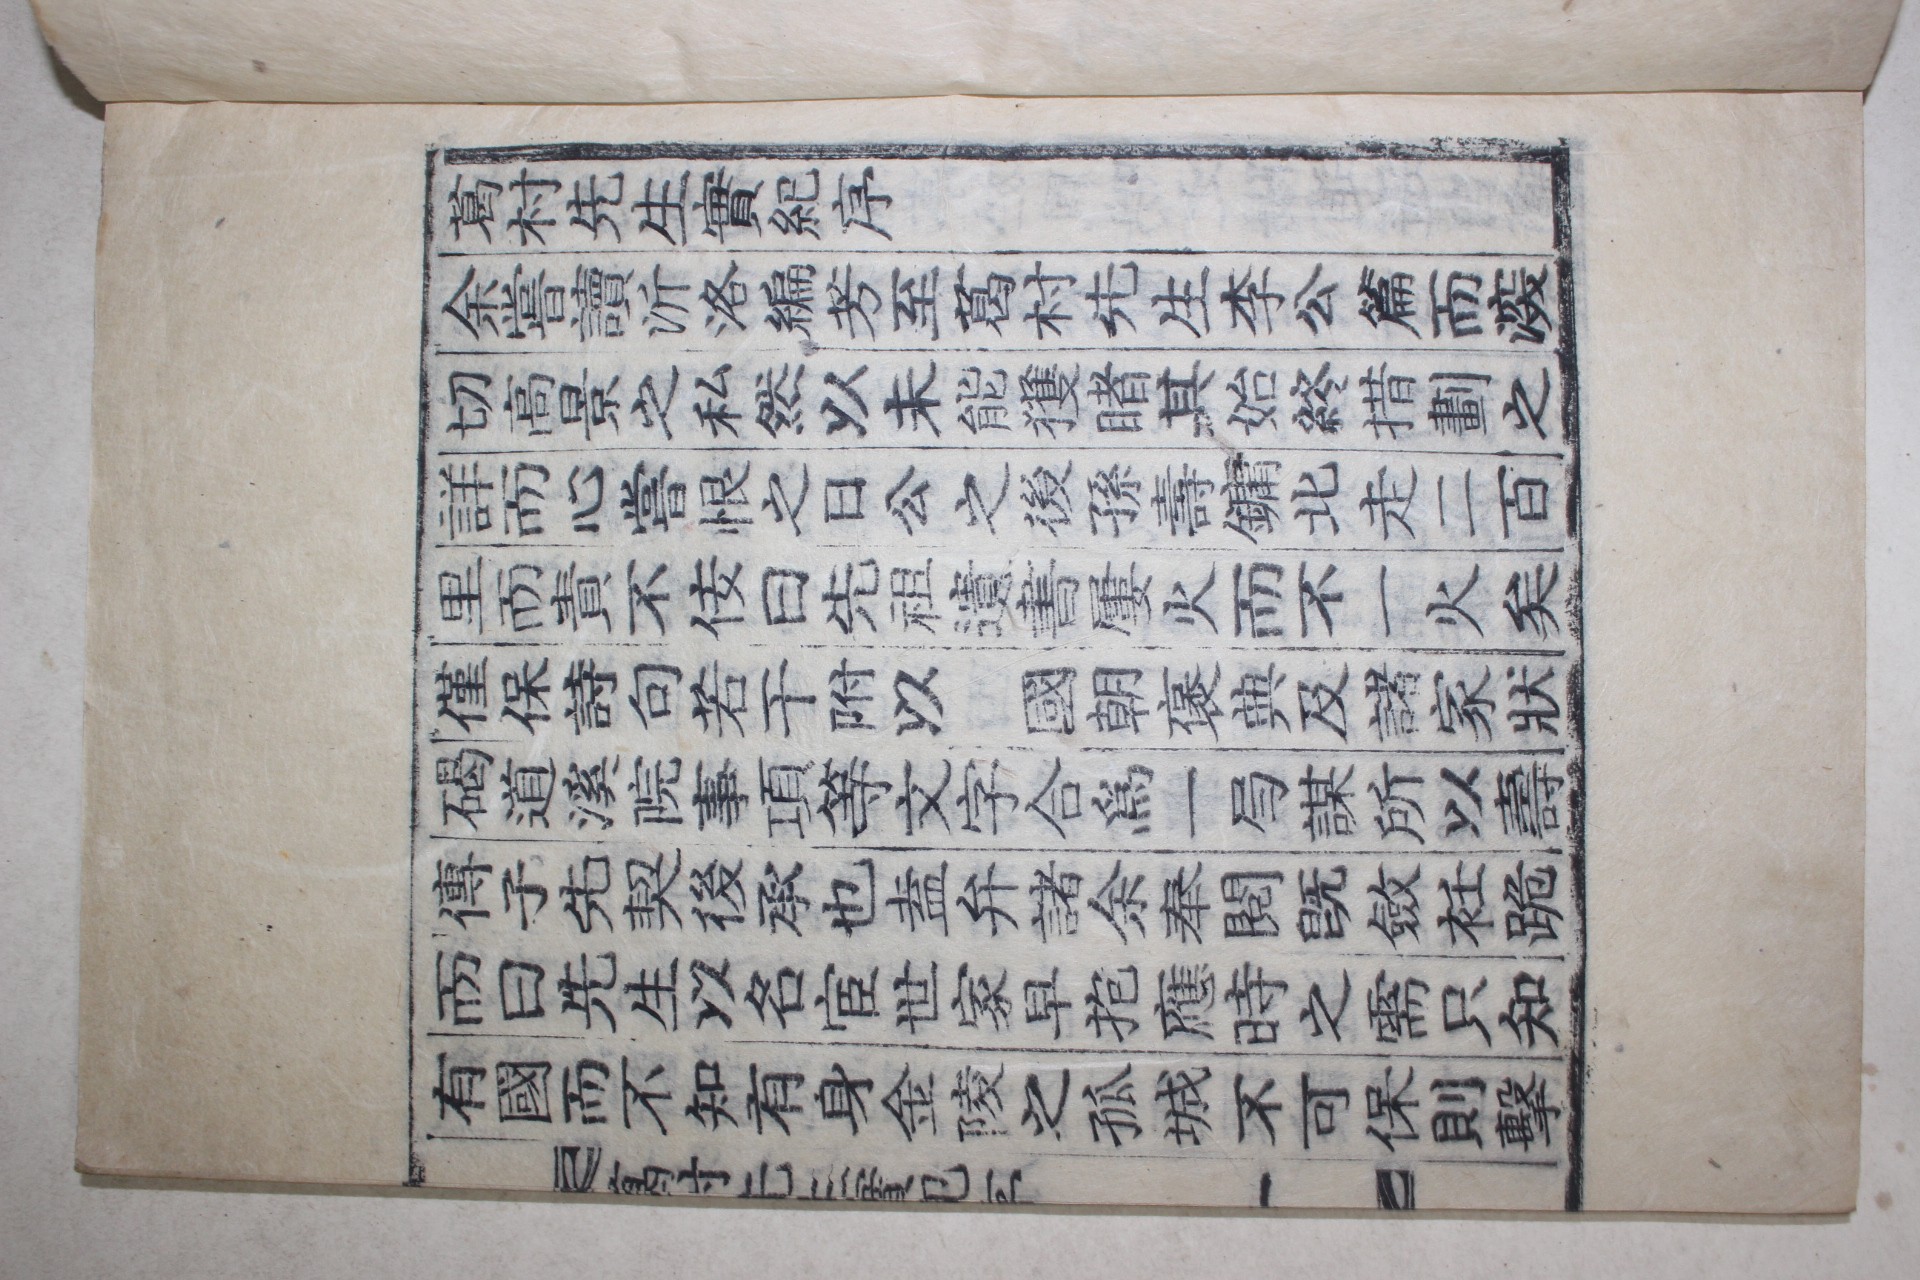 葛村先生實紀序
余嘗讀沂洛編芳至葛村先生李公篇而深
切高景之私然以未能獲睹其始終措劃之
詳而心嘗恨之日公之後孫壽鏞北走二百
里而責不佞曰先祖遺書屢火而不一火矣
僅保詩句若干附以 國朝褒典及諸家狀
碣道溪院事項等文字合爲一局謀所以壽
傳子先契後承也盍弁諸余奉閱旣斂衽跪
而曰先生以名宦世家早抱應時之需只知
有國而不知有身金陵之孤城不可保則擊
葛村先生實紀序
一